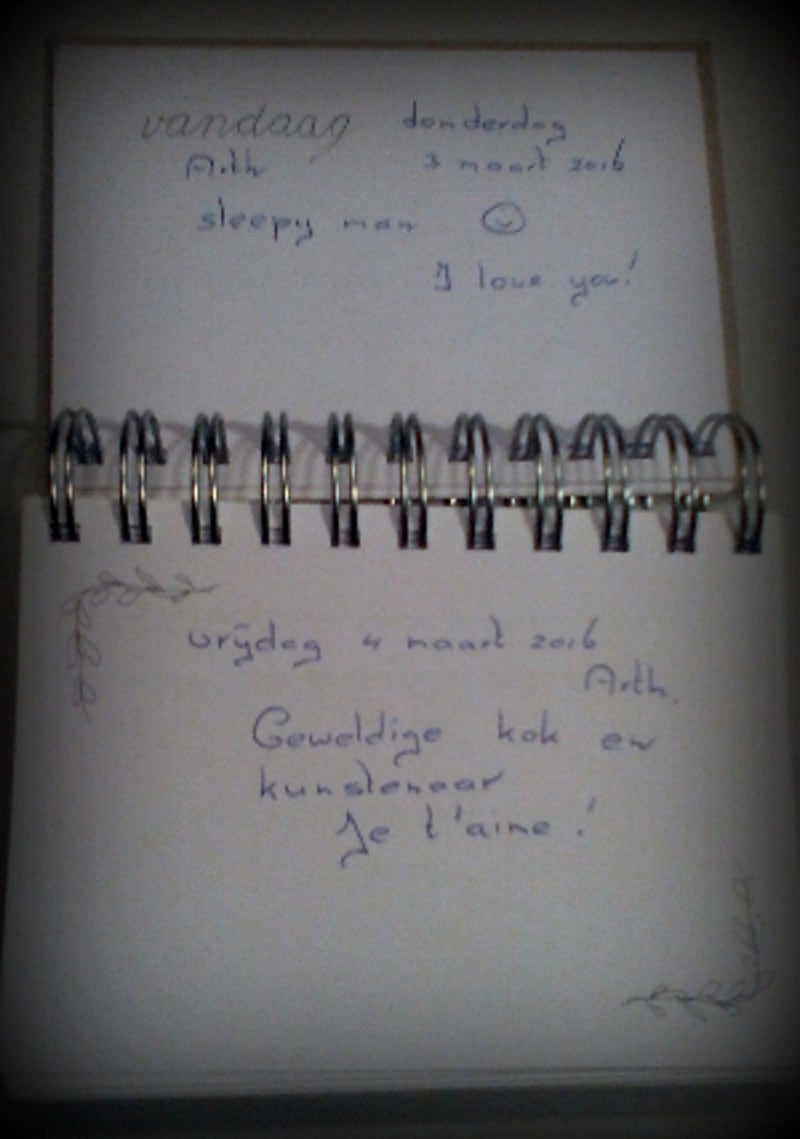 vandaag donderdag
Arth 3 maart 2016
sleepy man
I love you!
vrijdag 4 maart 2016
Arth.
Geweldige kok en
kunstenaar
Je t'aime !